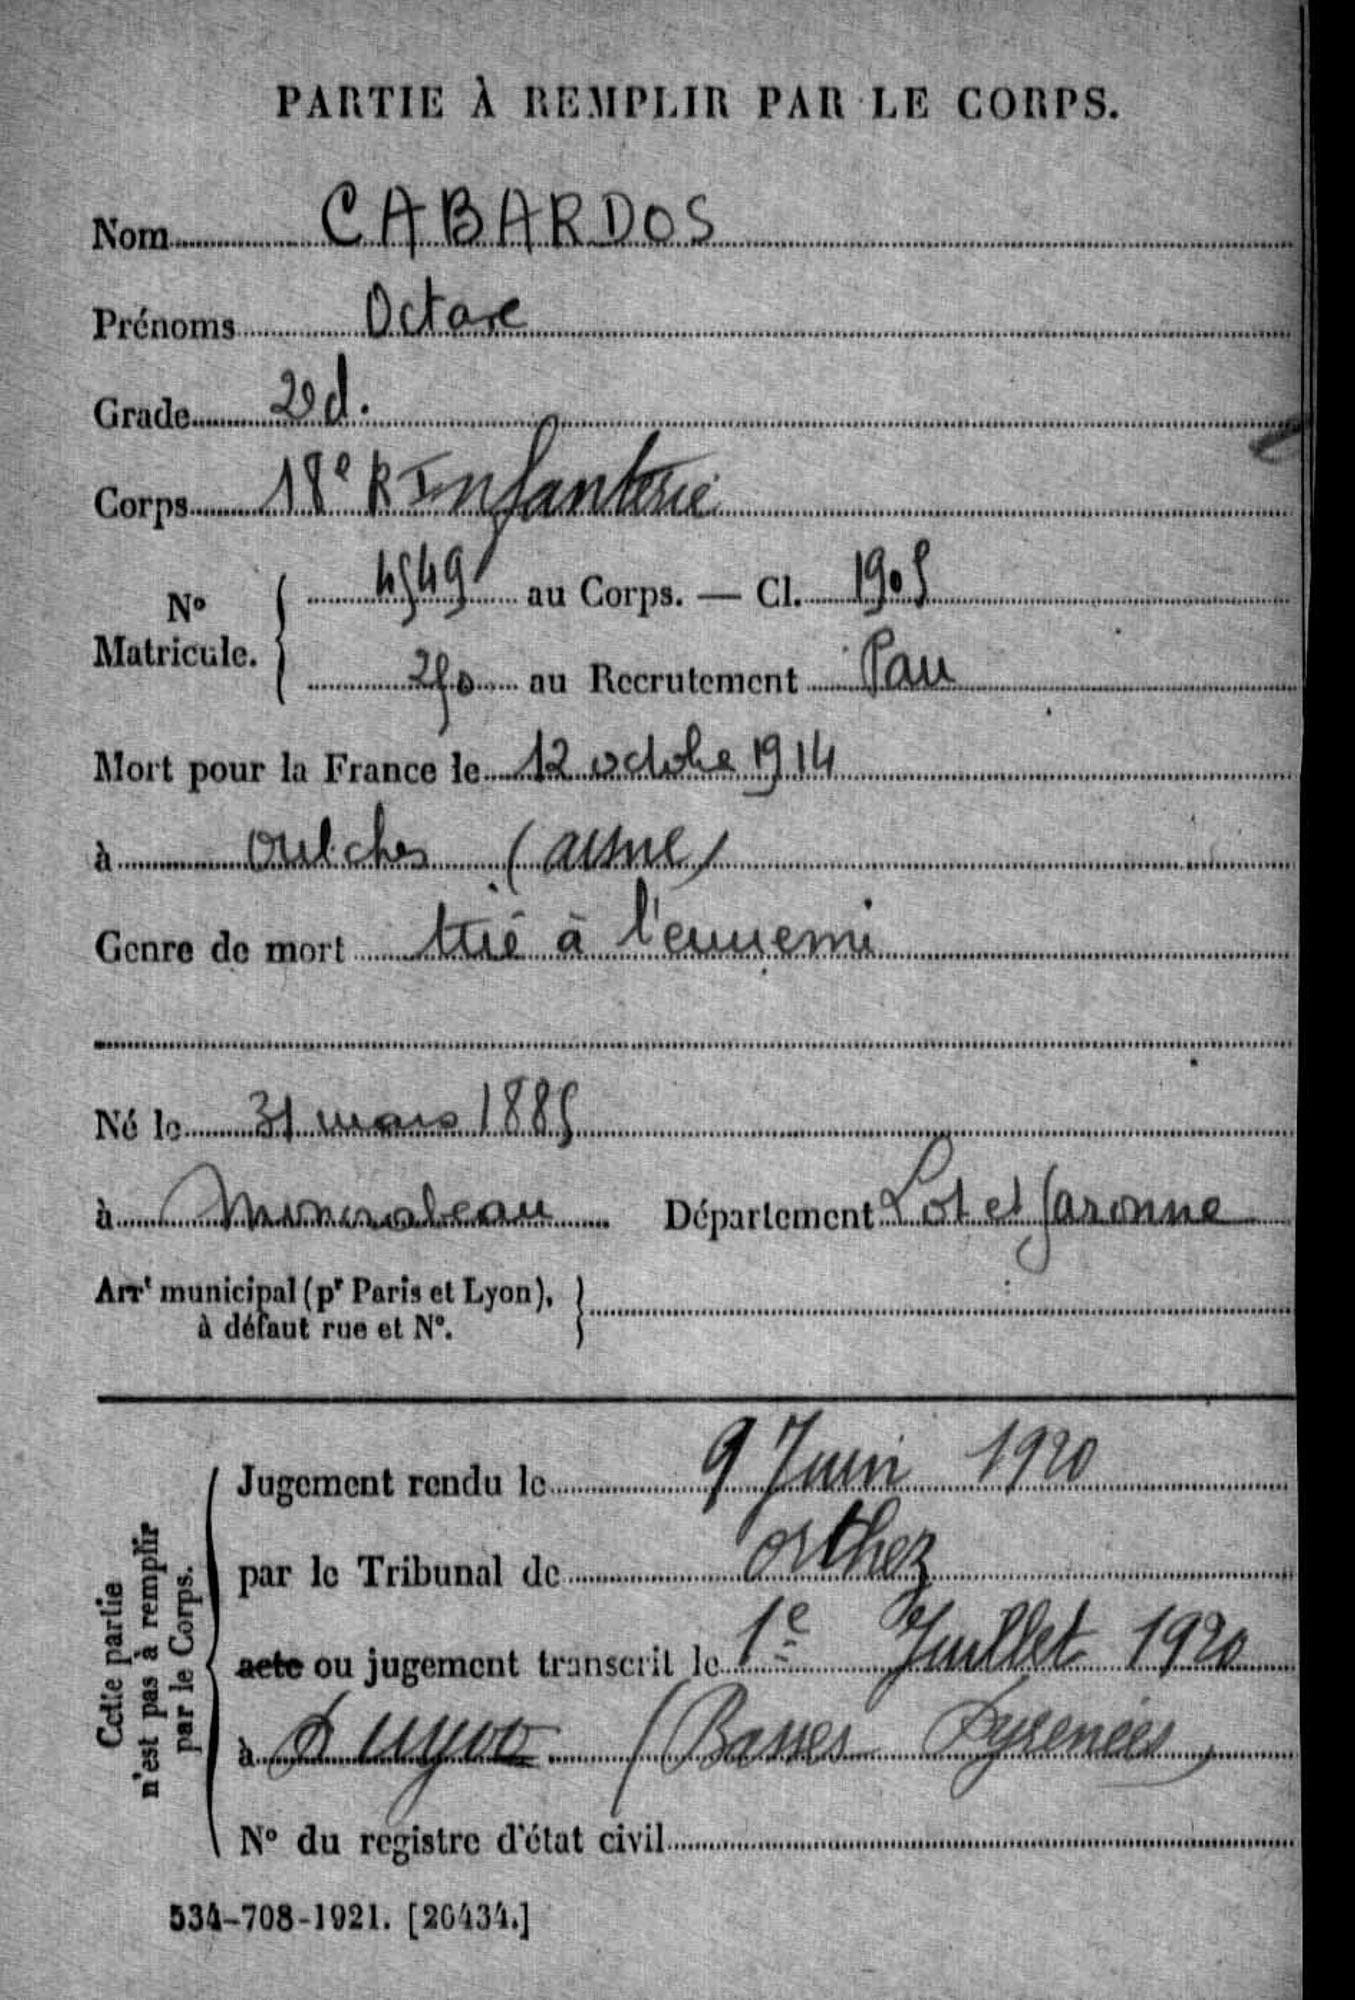 PARTIE À REMPLIR PAR LE CORPS.
Nom CABARDOS
Prénoms Octave
Grade 2e d.
Corps 18e R Infanterie
N° Matricule. 4549 au Corps. — Cl. 1905
250 au Recrutement Pau
Mort pour la France le 12 octobre 1914
à Oulches (Aisne)
Genre de mort tué à l'ennemi
Né le 31 mars 1885
à Moncrabeau Département Lot et Garonne
Arrt municipal (pr Paris et Lyon),
à défaut rue et N°.
Cette partie
n'est pas à remplir
par le Corps.
Jugement rendu le 9 Juin 1920
par le Tribunal de Orthez
acte ou jugement transcrit le 1e Juillet 1920
à Puyoo (Basses Pyrenées)
N° du registre d'état civil
534-708-1921. [26434.]